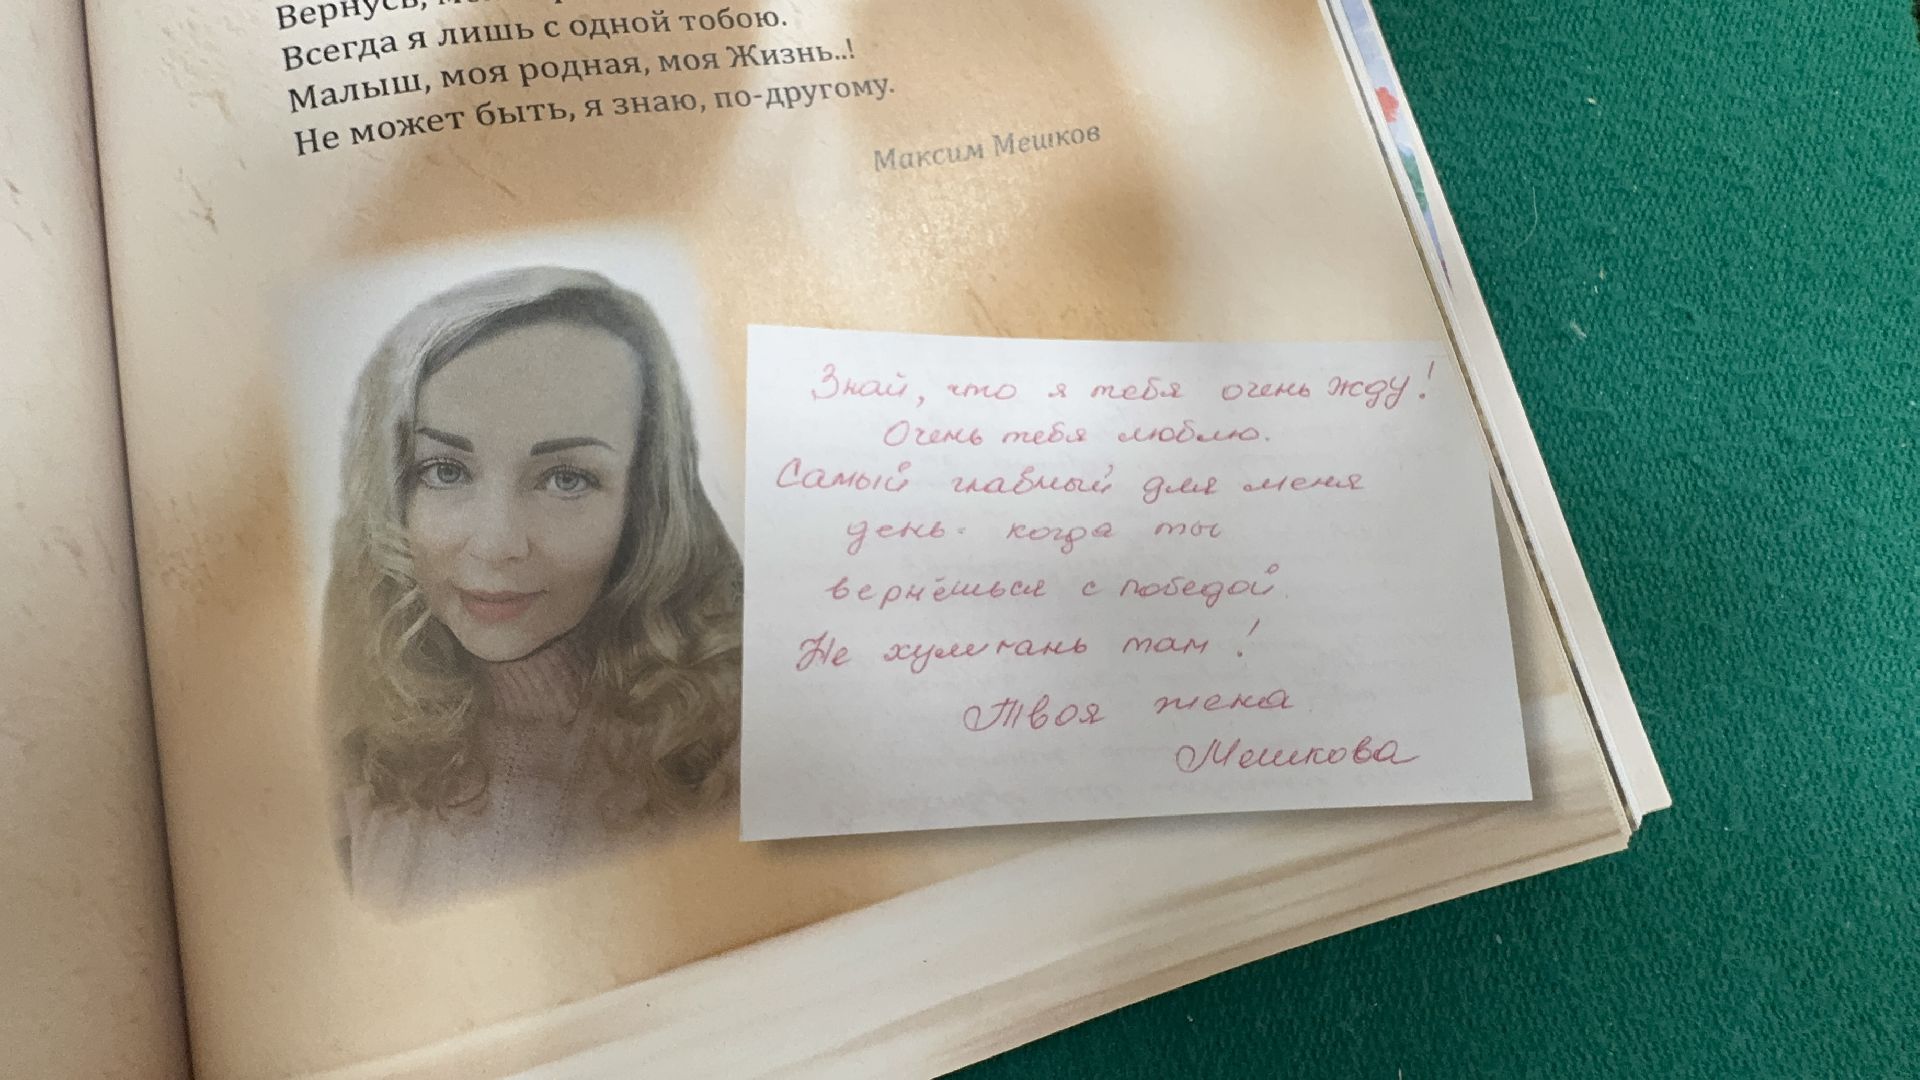 Всегда я лишь с одной тобою.
Малыш, моя родная, моя Жизнь..!
Не может быть, я знаю, по-другому.
Максим Мешков
Знай, что я тебя очень жду!
Очень тебя люблю.
Самый главный для меня
день - когда ты
вернёшься с победой.
Не хулигань там!
Твоя жена
Мешкова